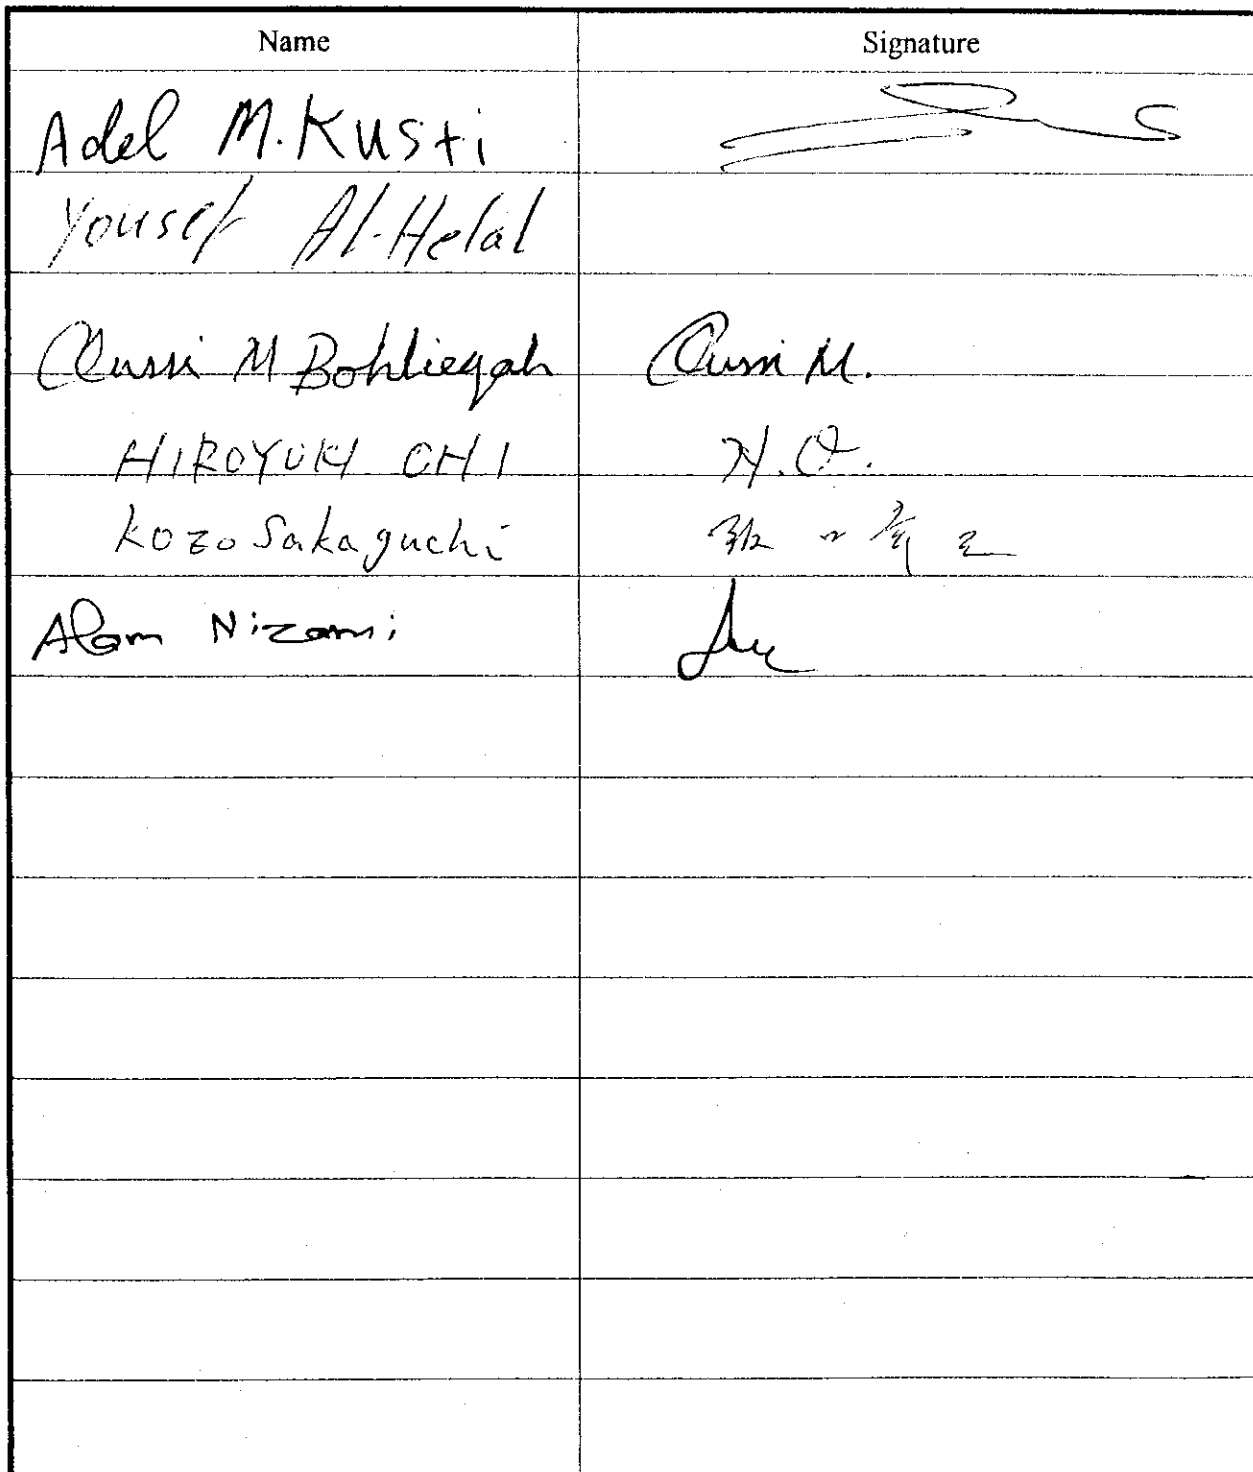 Name Signature
Adel M. Kusti
Yousef Al-Helal
Qussi M Bohliegah Qussi M.
HIROYUKI OHI H.O.
Kozo Sakaguchi
Alam Nizami